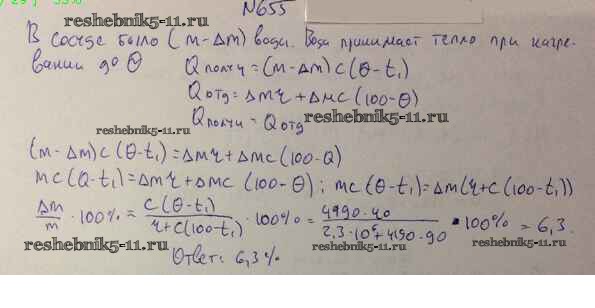 N655
reshebnik5-11.ru
В сосуде было (m-Δm) воды. Вода принимает тепло при нагре-
вании до θ Q получ = (m-Δm) c (θ-t₁)
Q отд = Δmr + Δmc (100-θ)
reshebnik5-11.ru
Q получ = Q отд
reshebnik5-11.ru
(m-Δm) c (θ-t₁) = Δmr + Δmc (100-Q)
mc (Q-t₁) = Δmr + Δmc (100-θ); mc (θ-t₁) = Δm(r+c(100-t₁))
Δm/m · 100% = c(θ-t₁)/(r+c(100-t₁)) · 100% = 4190·40/(2,3·10⁶+4190·90) · 100% = 6,3.
reshebnik5-11.ru
reshebnik5-11.ru
Ответ: 6,3%